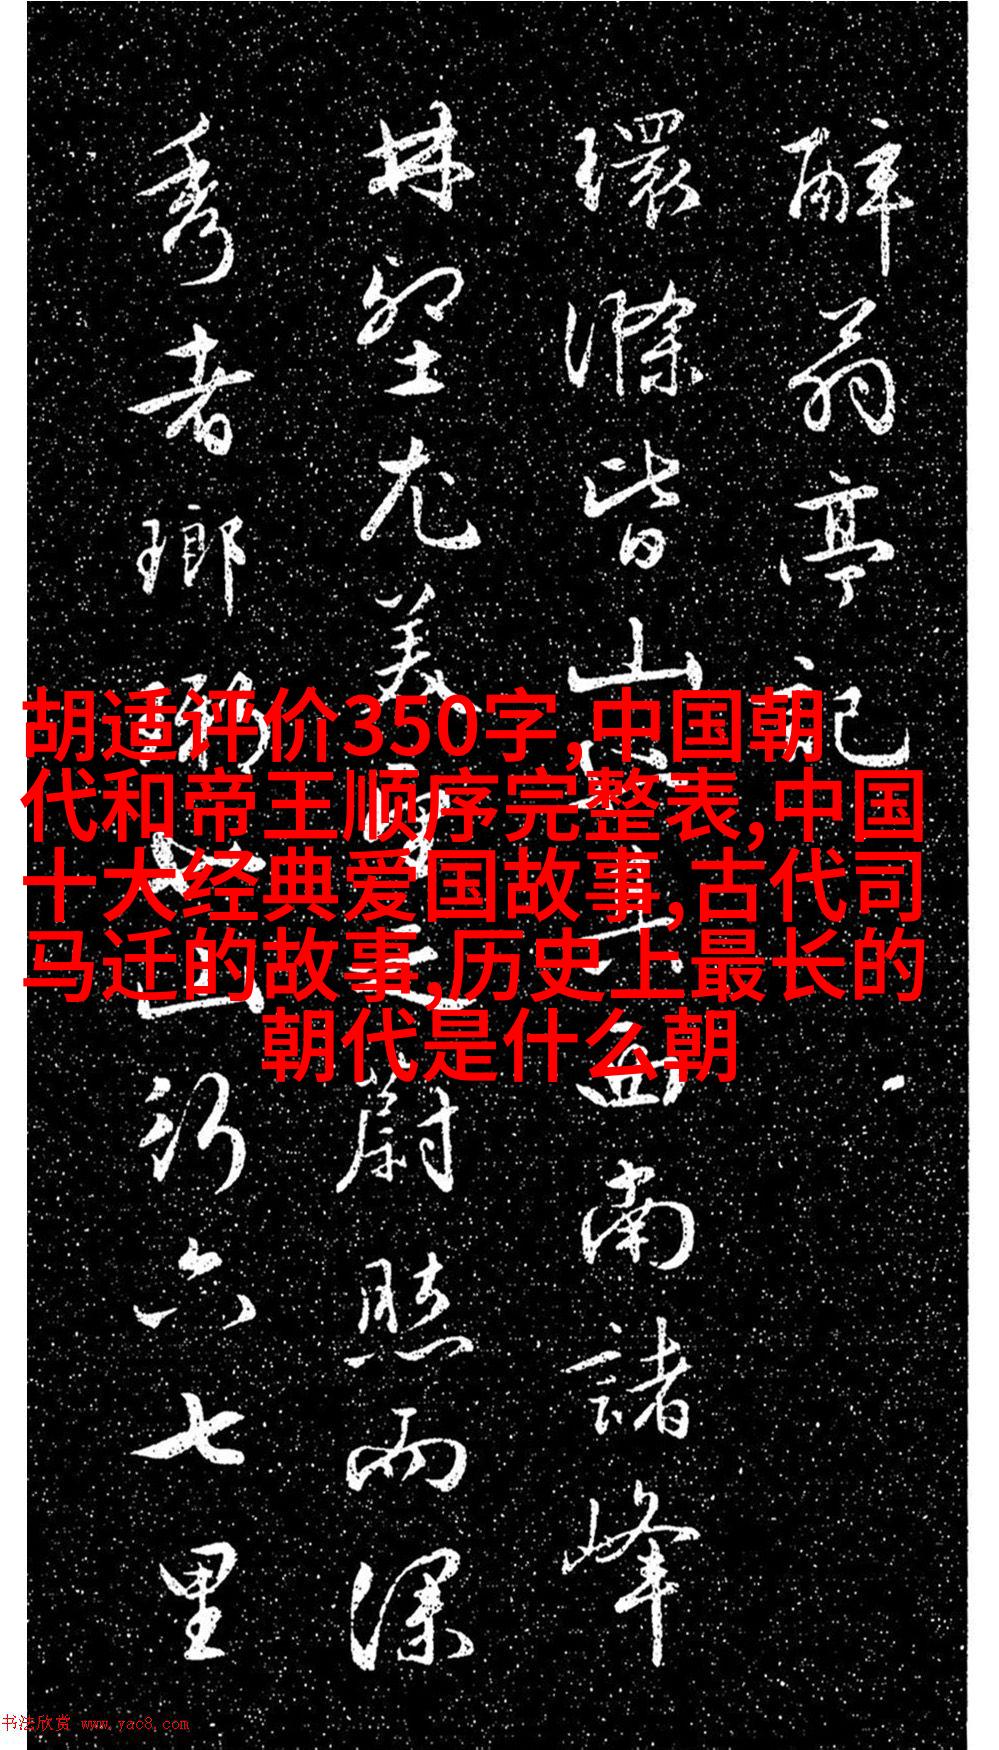 醉翁亭記
環滁皆山也其西南諸峰
林壑尤美望之蔚然而深
秀者瑯琊也山行六七里
胡适评价350字,中国朝
代和帝王顺序完整表,中国
十大经典爱国故事,古代司
马迁的故事,历史上最长的
朝代是什么朝
书法欣赏 www.yac8.com